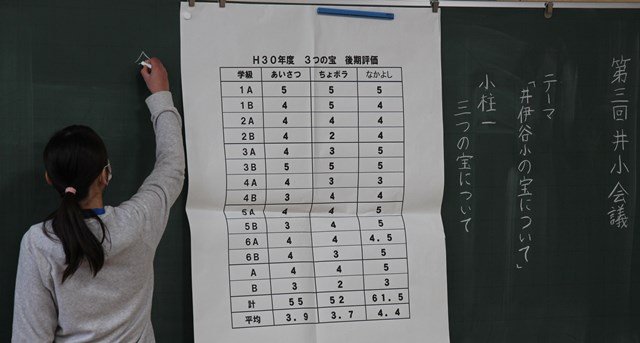 H30年度 3つの宝 後期評価
学級 あいさつ ちょボラ なかよし
1A 5 5 5
1B 4 5 4
2A 4 4 4
2B 4 2 4
3A 4 3 5
3B 5 5 5
4A 4 3 3
4B 3 4 4
5A 4 4 5
5B 3 4 5
6A 4 4 4.5
6B 4 3 5
A 4 4 5
B 3 2 3
計 55 52 61.5
平均 3.9 3.7 4.4
第三回 井小会議
テーマ
「井伊谷小の宝について」
小柱一
三つの宝について